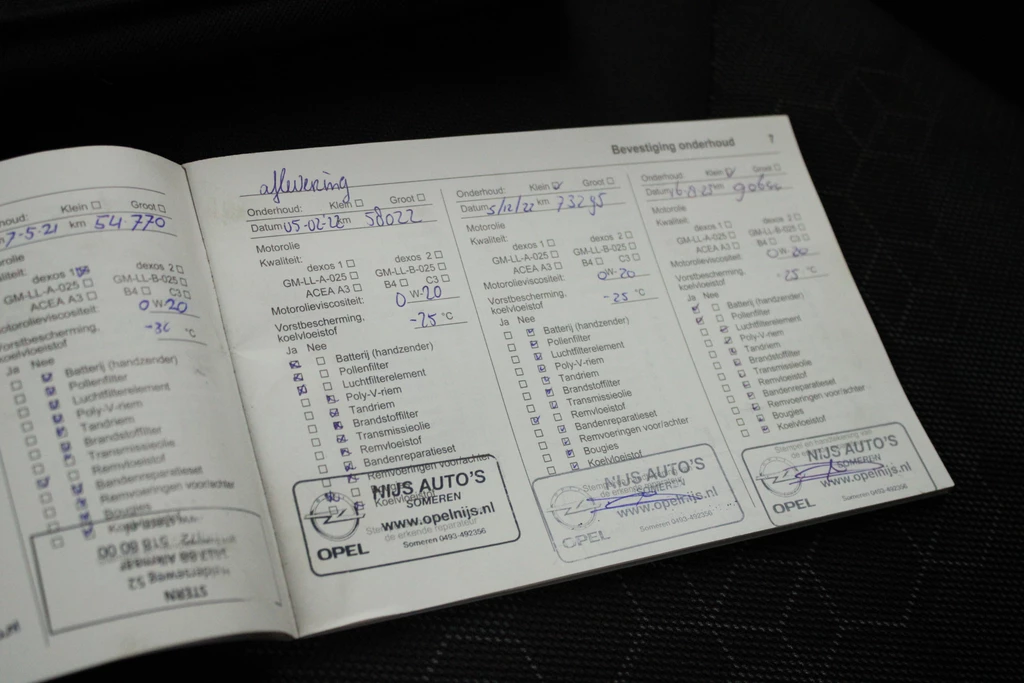 Bevestiging onderhoud 7
Klein
Groot
7-5-21 km 54 770
dexos 1
dexos 2
GM-LL-A-025
GM-LL-B-025
ACEA A3
B4 C3
Motorolieviscositeit: 0 W-20
Vorstbescherming,
koelvloeistof
°C
Ja Nee
Batterij (handzender)
Pollenfilter
Luchtfilterelement
Poly-V-riem
Tandriem
Brandstoffilter
Transmissieolie
Remvloeistof
Bandenreparatieset
Remvoeringen voor/achter
Bougies
STERN
aflevering
Onderhoud: Klein Groot
Datum 05-02-22 km 58022
Motorolie
Kwaliteit:
dexos 1 dexos 2
GM-LL-A-025 GM-LL-B-025
ACEA A3 B4 C3
Motorolieviscositeit: 0 W-20
Vorstbescherming,
koelvloeistof -25 °C
Ja Nee
Batterij (handzender)
Pollenfilter
Luchtfilterelement
Poly-V-riem
Tandriem
Brandstoffilter
Transmissieolie
Remvloeistof
Bandenreparatieset
Remvoeringen voor/achter
Koelvloeistof
NIJS AUTO'S
SOMEREN
www.opelnijs.nl
Someren 0493-492356
OPEL
Onderhoud: Klein Groot
Datum 5/12/22 km 73295
Motorolie
Kwaliteit:
dexos 1 dexos 2
GM-LL-A-025 GM-LL-B-025
ACEA A3 B4 C3
Motorolieviscositeit: 0W-20
Vorstbescherming,
koelvloeistof -25 °C
Ja Nee
Batterij (handzender)
Pollenfilter
Luchtfilterelement
Poly-V-riem
Tandriem
Brandstoffilter
Transmissieolie
Remvloeistof
Bandenreparatieset
Remvoeringen voor/achter
Bougies
Koelvloeistof
NIJS AUTO'S
SOMEREN
www.opelnijs.nl
Someren 0493-492356
OPEL
Onderhoud: Klein Groot
Datum km
Motorolie
Kwaliteit:
dexos 1 dexos 2
GM-LL-A-025 GM-LL-B-025
ACEA A3 B4 C3
Motorolieviscositeit: 0W-20
Vorstbescherming,
koelvloeistof -25 °C
Ja Nee
Batterij (handzender)
Pollenfilter
Luchtfilterelement
Poly-V-riem
Tandriem
Brandstoffilter
Transmissieolie
Remvloeistof
Bandenreparatieset
Remvoeringen voor/achter
Bougies
Koelvloeistof
NIJS AUTO'S
SOMEREN
www.opelnijs.nl
Someren 0493-492356
OPEL